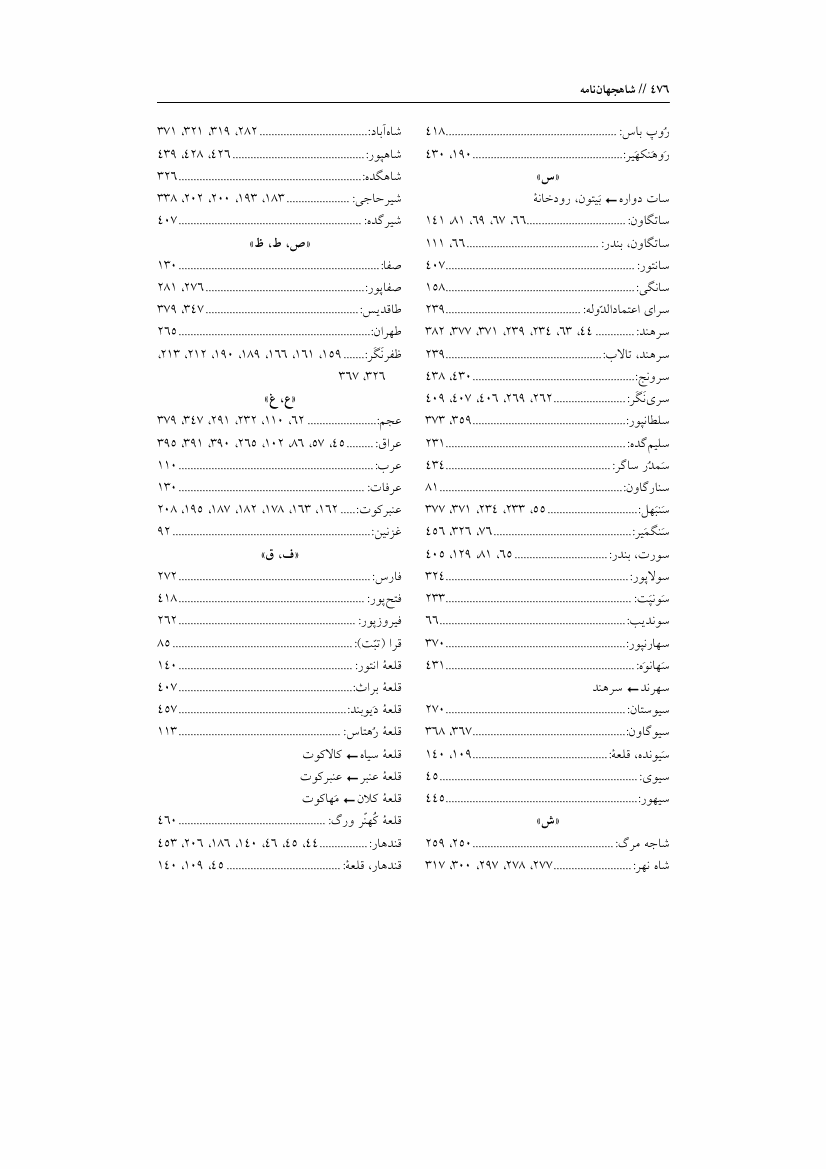 ٤٧٦ // شاهجهان‌نامه
رُوپ باس: ......................................................... ٤١٨
رَوهَنکهیَر: .................................................. ١٩٠، ٤٣٠
«س»
سات دواره ← بَیتون، رودخانهٔ
ساتگاون: ................................. ٦٦، ٦٧، ٦٩، ٨١، ١٤١
ساتگاون، بندر: ............................................ ٦٦، ١١١
سانتور: ............................................................... ٤٠٧
سانگی: ............................................................... ١٥٨
سرای اعتمادالدّوله: ............................................. ٢٣٩
سرهند: ............. ٤٤، ٦٣، ٢٣٤، ٢٣٩، ٣٧١، ٣٧٧، ٣٨٢
سرهند، تالاب: .................................................... ٢٣٩
سرونج: ...................................................... ٤٣٠، ٤٣٨
سری‌نَگَر: ........................ ٢٦٢، ٢٦٩، ٤٠٦، ٤٠٧، ٤٠٩
سلطانپور: ................................................... ٣٥٩، ٣٧٣
سلیم‌گده: ............................................................ ٢٣١
سَمدْر ساگر: ....................................................... ٤٣٤
سنارگاون: ............................................................. ٨١
سَنبَهل: .............................. ٥٥، ٢٣٣، ٢٣٤، ٣٧١، ٣٧٧
سَنگَمیر: .............................................. ٧٦، ٣٢٦، ٤٥٦
سورت، بندر: ............................... ٦٥، ٨١، ١٢٩، ٤٠٥
سولاپور: ............................................................. ٣٢٤
سَونِپَت: .............................................................. ٢٣٣
سوندیب: .............................................................. ٦٦
سهارنپور: ............................................................ ٣٧٠
سَهانوَه: ............................................................... ٤٣١
سهرند ← سرهند
سیوستان: ............................................................ ٢٧٠
سیوگاون: ................................................... ٣٦٧، ٣٦٨
سَیونده، قلعهٔ: ............................................. ١٠٩، ١٤٠
سیوی: .................................................................. ٤٥
سیهور: ................................................................ ٤٤٥
«ش»
شاجه مرگ: ............................................... ٢٥٠، ٢٥٩
شاه نهر: .......................... ٢٧٧، ٢٧٨، ٢٩٧، ٣٠٠، ٣١٧
شاه‌آباد: .................................... ٢٨٢، ٣١٩، ٣٢١، ٣٧١
شاهپور: ............................................ ٤٢٦، ٤٢٨، ٤٣٩
شاهگده: ............................................................. ٣٢٦
شیرحاجی: ..................... ١٨٣، ١٩٣، ٢٠٠، ٢٠٢، ٣٣٨
شیرگده: ............................................................. ٤٠٧
«ص، ط، ظ»
صفا: ................................................................... ١٣٠
صفاپور: ..................................................... ٢٧٦، ٢٨١
طاقدیس: ................................................... ٣٤٧، ٣٧٩
طهران: ................................................................ ٢٦٥
ظفرنَگَر: ....... ١٥٩، ١٦١، ١٦٦، ١٨٩، ١٩٠، ٢١٢، ٢١٣،
٣٢٦، ٣٦٧
«ع، غ»
عجم: ....................... ٦٢، ١١٠، ٢٣٢، ٢٩١، ٣٤٧، ٣٧٩
عراق: ......... ٤٥، ٥٧، ٨٦، ١٠٢، ٢٦٥، ٣٩٠، ٣٩١، ٣٩٥
عرب: ................................................................. ١١٠
عرفات: .............................................................. ١٣٠
عنبرکوت: ..... ١٦٢، ١٦٣، ١٧٨، ١٨٢، ١٨٧، ١٩٥، ٢٠٨
غزنین: .................................................................. ٩٢
«ف، ق»
فارس: ................................................................ ٢٧٢
فتح‌پور: .............................................................. ٤١٨
فیروزپور: ........................................................... ٢٦٢
قرا (تبّت): ............................................................ ٨٥
قلعهٔ انتور: .......................................................... ١٤٠
قلعهٔ براث: .......................................................... ٤٠٧
قلعهٔ دَیوبند: ........................................................ ٤٥٧
قلعهٔ رُهتاس: ...................................................... ١١٣
قلعهٔ سیاه ← کالاکوت
قلعهٔ عنبر ← عنبرکوت
قلعهٔ کلان ← مَهاکوت
قلعهٔ کُهنّر ورگ: ................................................. ٤٦٠
قندهار: ................ ٤٤، ٤٥، ٤٦، ١٤٠، ١٨٦، ٢٠٦، ٤٥٣
قندهار، قلعهٔ: ...................................... ٤٥، ١٠٩، ١٤٠